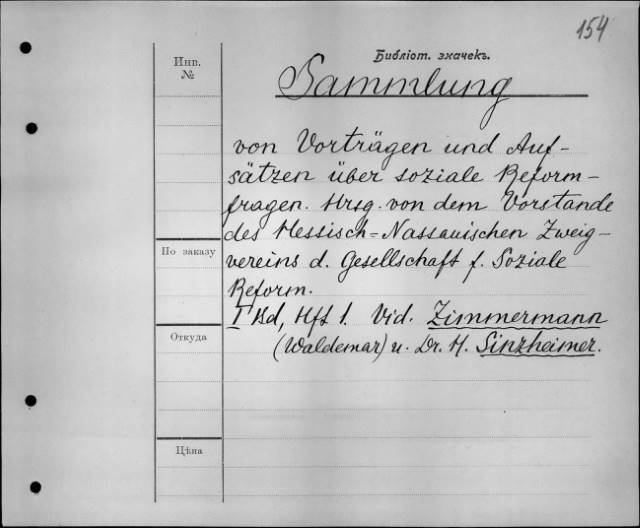 154
Библіот. значекъ.
Инв.
№
Sammlung
von Vorträgen und Auf-
sätzen über soziale Reform-
fragen. Hrsg. von dem Vorstande
des Hessisch-Nassauischen Zweig-
По заказу
vereins d. Gesellschaft f. Soziale
Reform.
I Bd, Hft 1. Vid. Zimmermann
Откуда
(Waldemar) u. Dr. H. Sinzheimer.
Цѣна